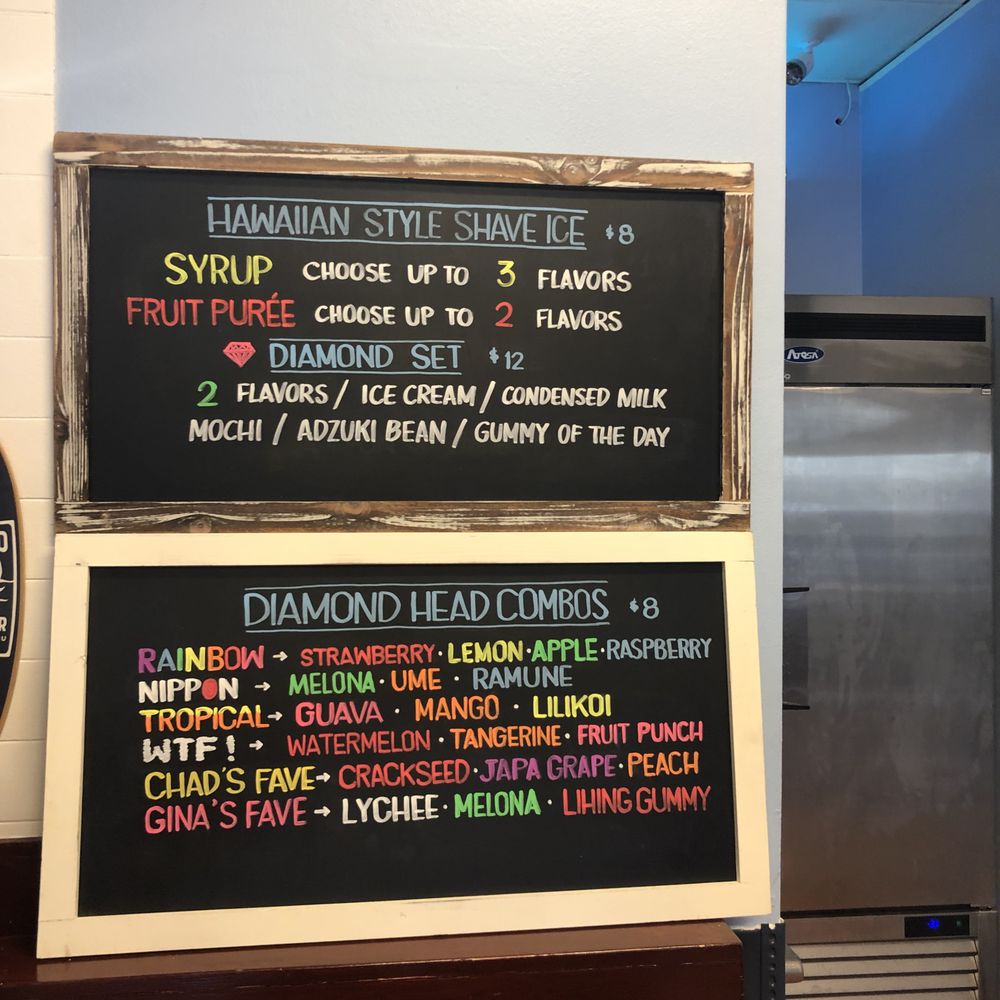 HAWAIIAN STYLE SHAVE ICE $8
SYRUP CHOOSE UP TO 3 FLAVORS
FRUIT PURÉE CHOOSE UP TO 2 FLAVORS
DIAMOND SET $12
2 FLAVORS / ICE CREAM / CONDENSED MILK
MOCHI / ADZUKI BEAN / GUMMY OF THE DAY
DIAMOND HEAD COMBOS $8
RAINBOW → STRAWBERRY · LEMON · APPLE · RASPBERRY
NIPPON → MELONA · UME · RAMUNE
TROPICAL → GUAVA · MANGO · LILIKOI
WTF! → WATERMELON · TANGERINE · FRUIT PUNCH
CHAD'S FAVE → CRACKSEED · JAPA GRAPE · PEACH
GINA'S FAVE → LYCHEE · MELONA · LIHING GUMMY
Atosa